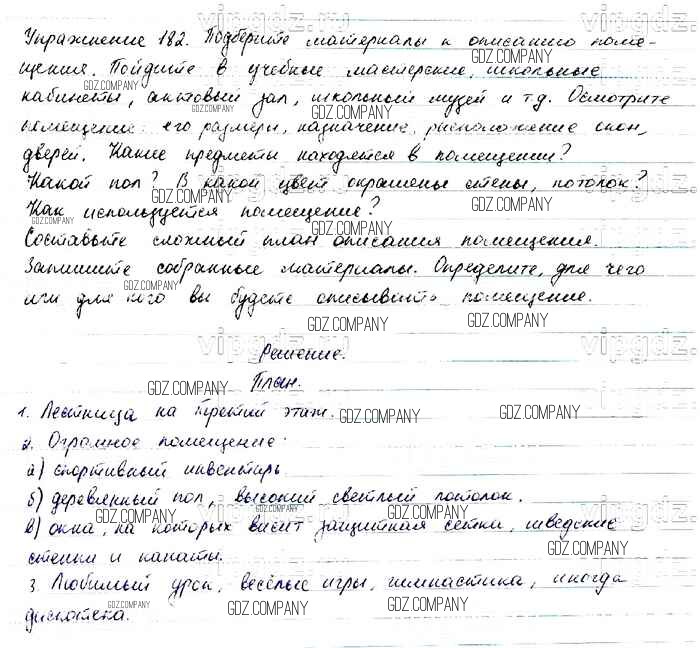 Упражнение 182. Подберите материалы к описанию поме-
щения. Пойдите в учебные мастерские, школьные
кабинеты, актовый зал, школьный музей и т.д. Осмотрите
помещение: его размеры, назначение, расположение окон,
дверей. Какие предметы находятся в помещении?
Какой пол? В какой цвет окрашены стены, потолок?
Как используется помещение?
Составьте сложный план описания помещения.
Запишите собранные материалы. Определите, для чего
или для кого вы будете описывать помещение.
Решение.
План.
1. Лестница на третий этаж.
2. Огромное помещение:
а) спортивный инвентарь
б) деревянный пол, высокий светлый потолок.
в) окна, на которых висит защитная сетка, шведские
стенки и канаты.
3. Любимый урок, весёлые игры, гимнастика, иногда
дискотека.